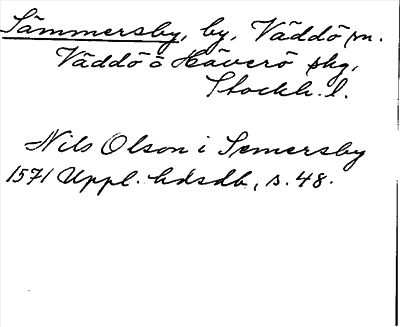 Sämmersby, by, Väddö sn.
Väddö o Häverö skg,
Stockh. l.
Nils Olson i Semersby
1571 Uppl. hdsdb, s. 48.